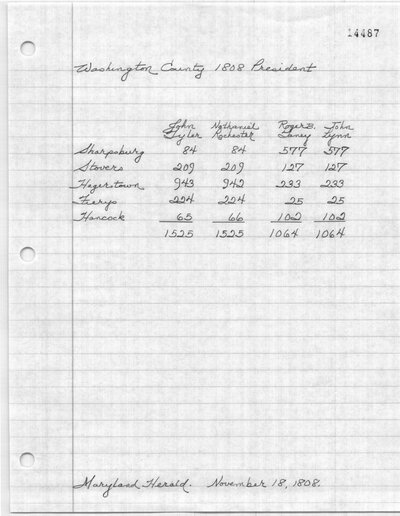 14487
Washington County 1808 President
John Nathaniel Roger B. John
Tyler Rochester Taney Lynn
Sharpsburg 84 84 577 577
Stovers 209 209 127 127
Hagerstown 943 942 233 233
Fierys 224 224 25 25
Hancock 65 66 102 102
1525 1525 1064 1064
Maryland Herald. November 18, 1808.